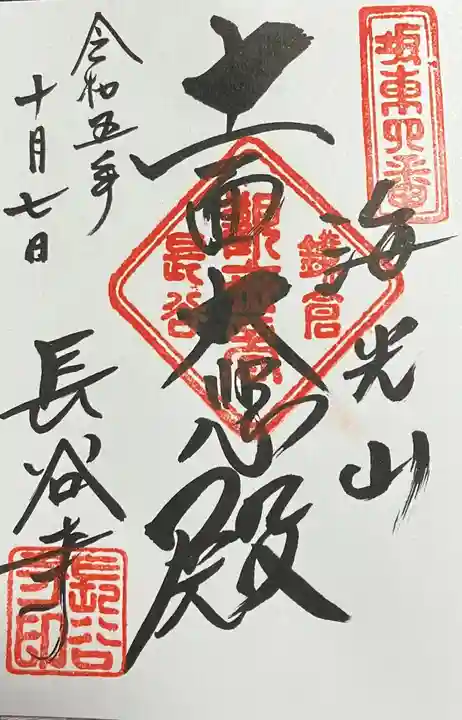 坂東四番
海光山
十一面大悲殿
鎌倉
長谷
長谷寺
令和五年
十月七日
長谷寺印